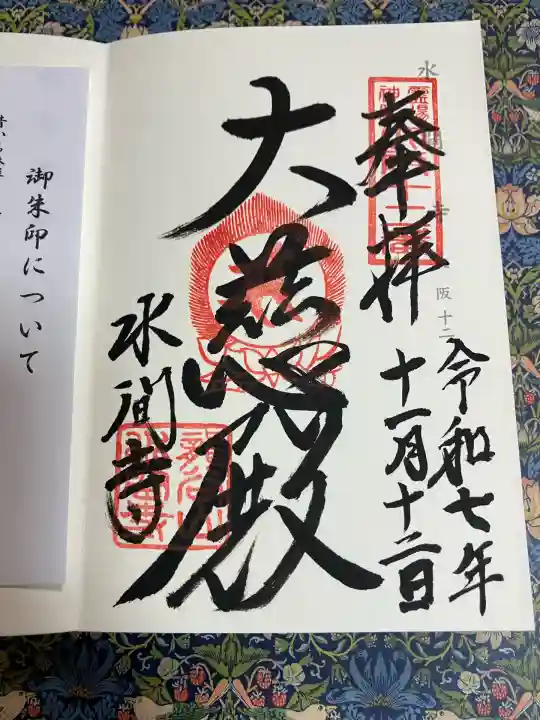 奉拝
令和七年
十一月十二日
大慈殿
水間寺
阪十二
御朱印について